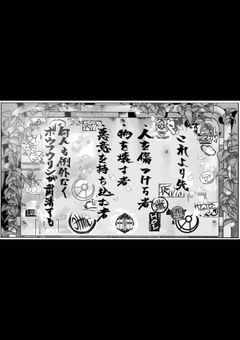 これより先
人を傷つける者
物を壊す者
悪意を持ち込む者
何人も例外なく
ボウフウリンが粛清する